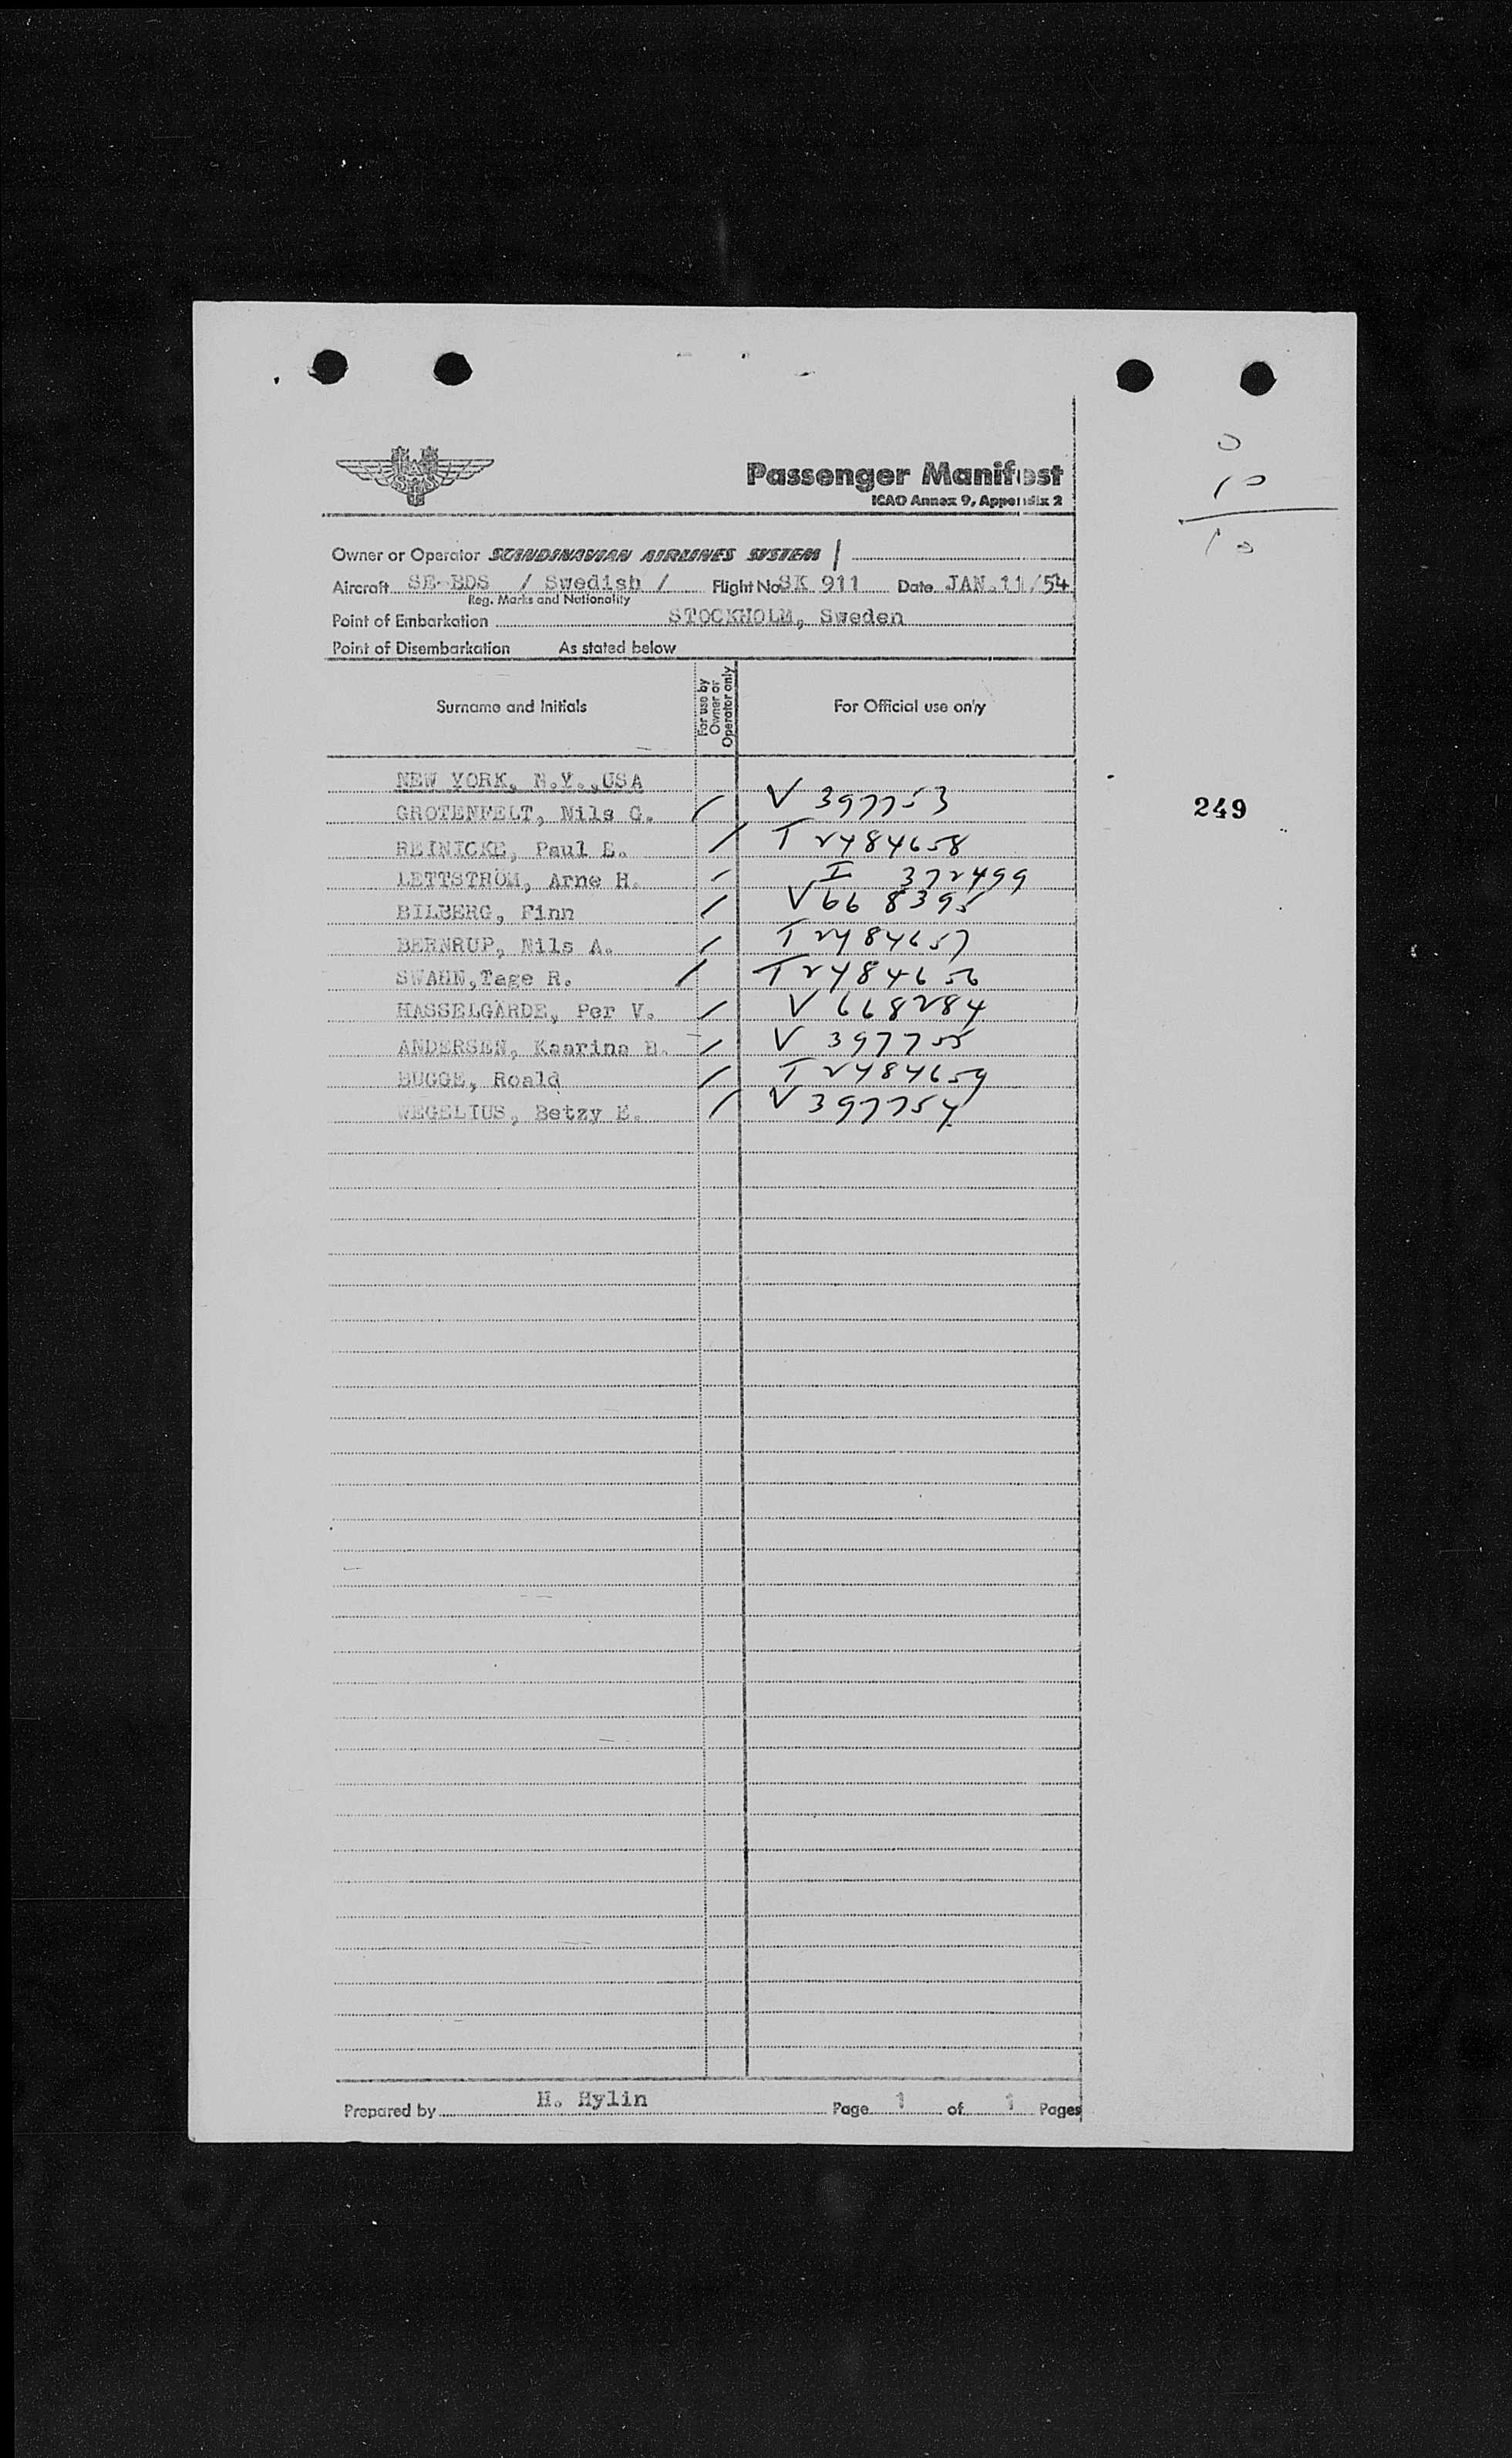 SAS
Passenger Manifest
ICAO Annex 9, Appendix 2
0
10
10
Owner or Operator SCANDINAVIAN AIRLINES SYSTEM /
Aircraft SE-BDS / Swedish / Flight No SK 911 Date JAN.11/54
Reg. Marks and Nationality
Point of Embarkation STOCKHOLM, Sweden
Point of Disembarkation As stated below
Surname and Initials For use by Owner or Operator only For Official use only
NEW YORK, N.Y.,USA
GROTENFELT, Nils G. / V 397753
249
REINICKE, Paul E. / T 2484658
LETTSTRÖM, Arne H. / I 372499
BILBERG, Finn / V 668395
BERNRUP, Nils A. / T 2484657
SWAHN,Tage R. / T 2484656
HASSELGÄRDE, Per V. / V 668284
ANDERSEN, Kaarina H. / V 397755
BUGGE, Roald / T 2484659
WEGELIUS, Betzy E. / V 397754
Prepared by H. Hylin Page 1 of 1 Pages